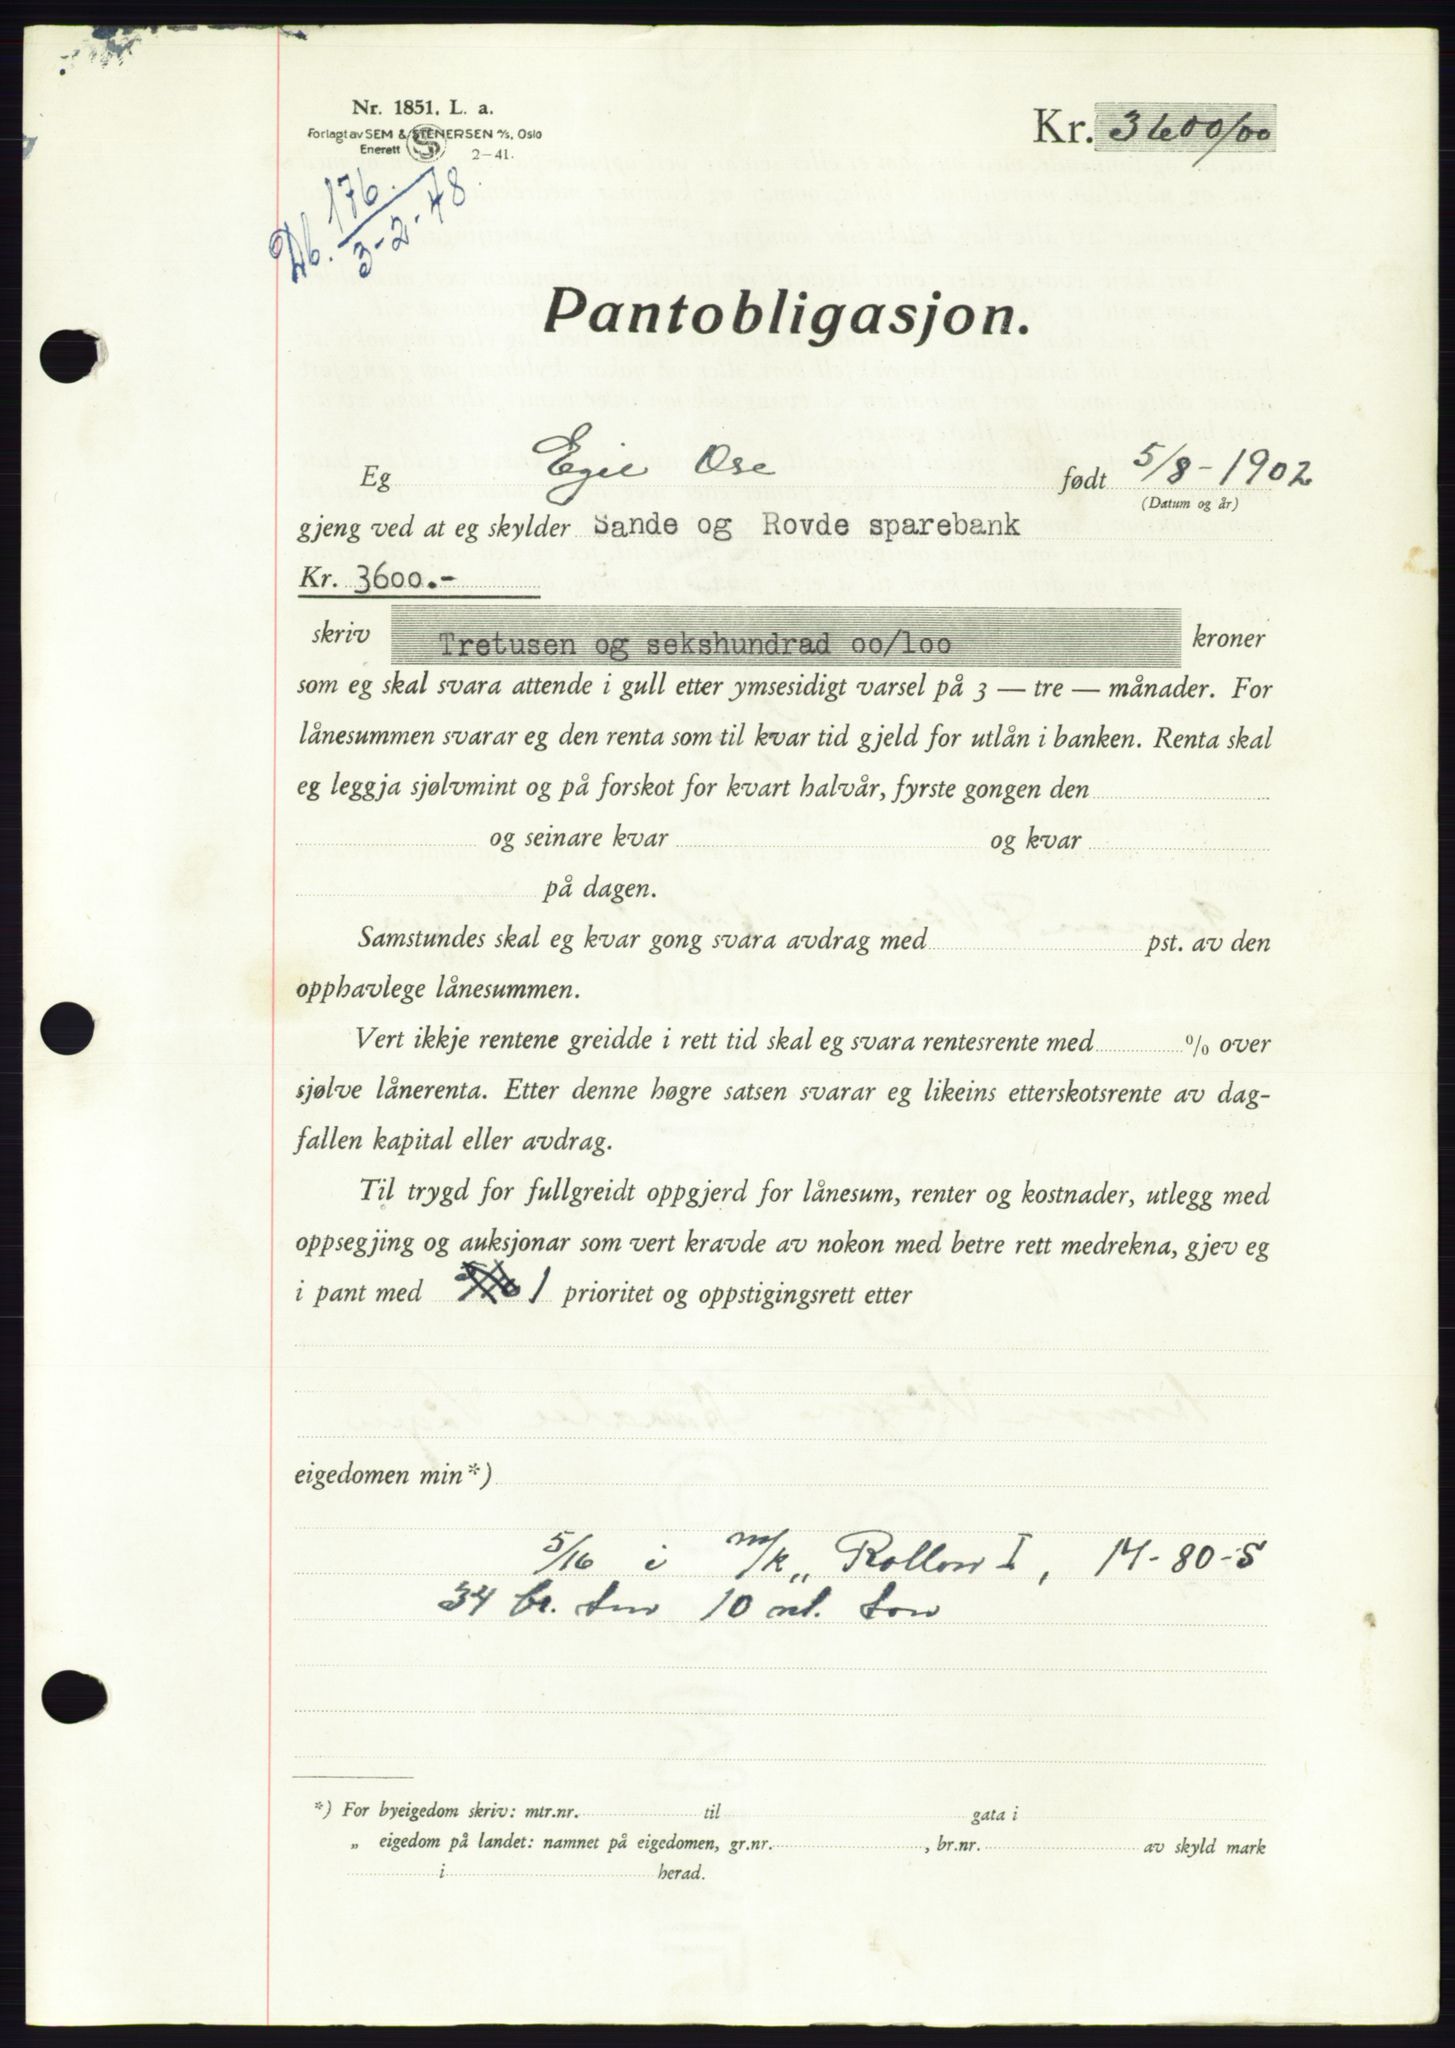 Nr. 1851. L. a.
Forlagt av SEM & STENERSEN A/S, Oslo
Enerett S 2-41.
Kr. 3600/00
Db. 176. / 3-2-48
Pantobligasjon.
Eg Egil Ose født 5/8-1902
(Datum og år)
gjeng ved at eg skylder Sande og Rovde sparebank
Kr. 3600.-
skriv Tretusen og sekshundrad oo/loo kroner
som eg skal svara attende i gull etter ymsesidigt varsel på 3 — tre — månader. For
lånesummen svarar eg den renta som til kvar tid gjeld for utlån i banken. Renta skal
eg leggja sjølvmint og på forskot for kvart halvår, fyrste gongen den
og seinare kvar og kvar
på dagen.
Samstundes skal eg kvar gong svara avdrag med pst. av den
opphavlege lånesummen.
Vert ikkje rentene greidde i rett tid skal eg svara rentesrente med % over
sjølve lånerenta. Etter denne høgre satsen svarar eg likeins etterskotsrente av dag-
fallen kapital eller avdrag.
Til trygd for fullgreidt oppgjerd for lånesum, renter og kostnader, utlegg med
oppsegjing og auksjonar som vert kravde av nokon med betre rett medrekna, gjev eg
i pant med 1 prioritet og oppstigingsrett etter
eigedomen min*)
5/16 i m/k „ Rollon I, M-80-S
34 br. tonn 10 nt. tonn
*) For byeigedom skriv: mtr.nr. til gata i
„ eigedom på landet: namnet på eigedomen, gr.nr. , br.nr. av skyld mark
i herad.